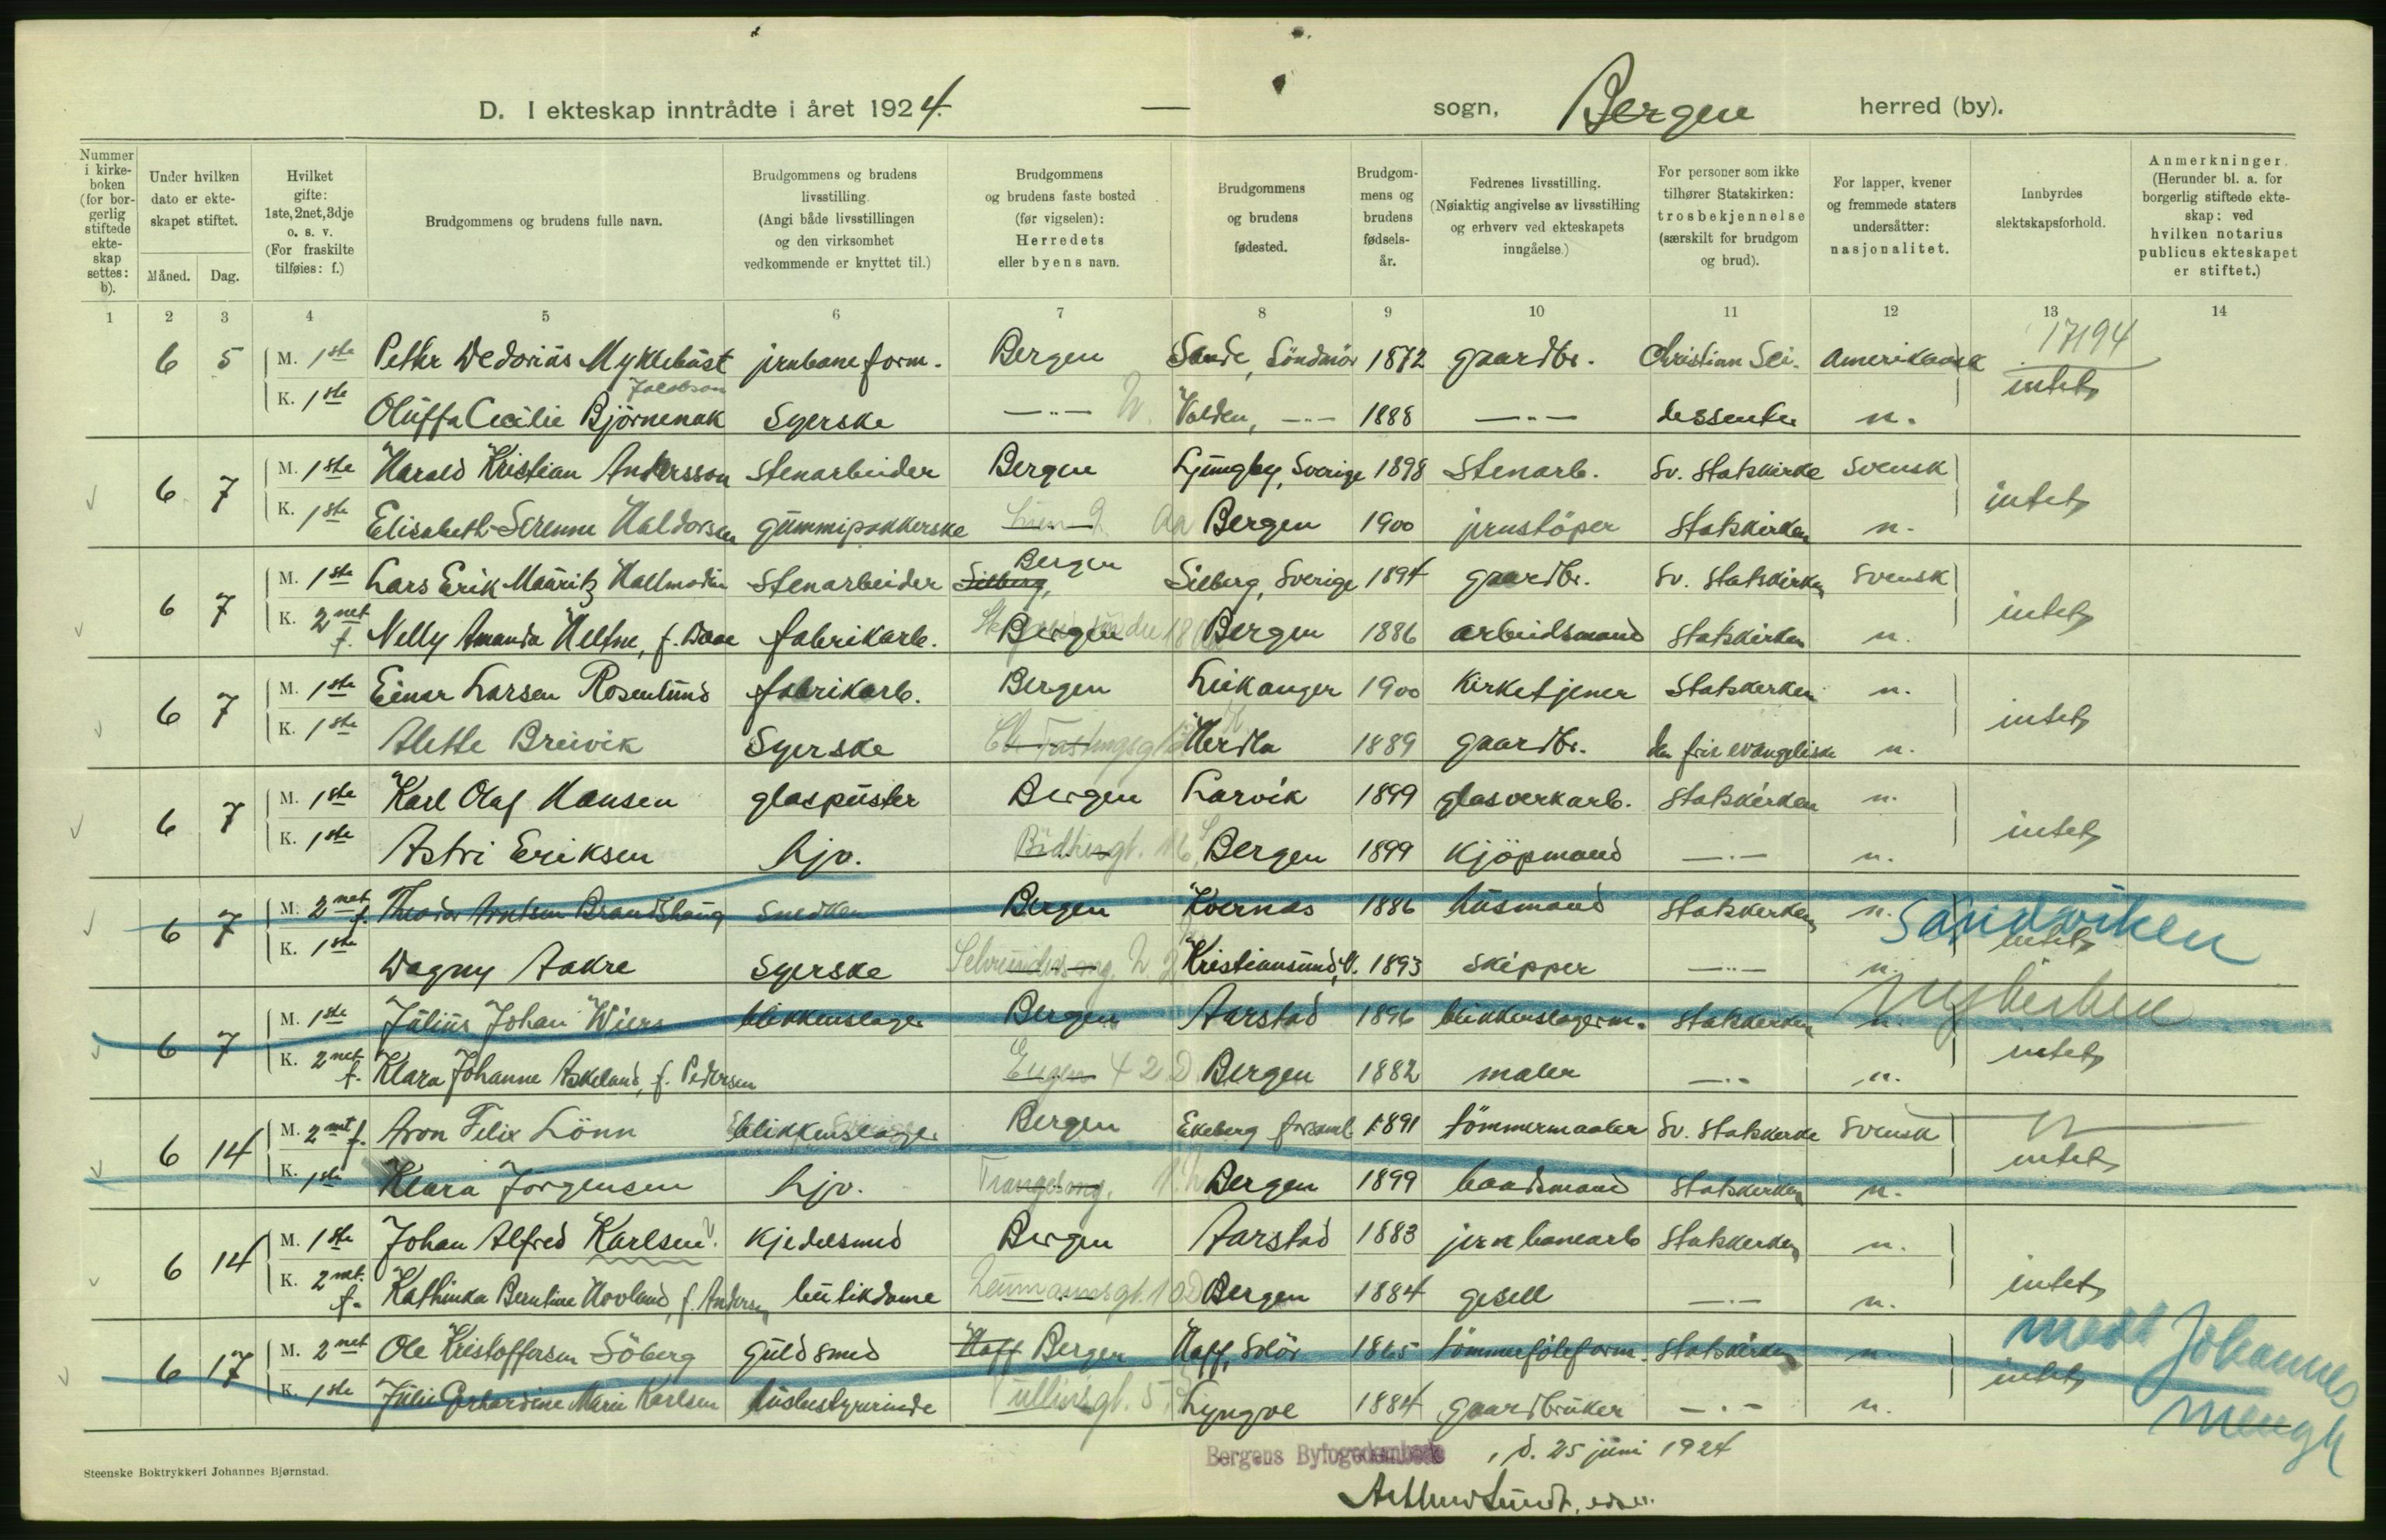 D. I ekteskap inntrådte i året 1924. — sogn, Bergen herred (by).
Nummer i kirkeboken (for borgerlig stiftede ekteskap settes: b).
Under hvilken dato er ekteskapet stiftet.
Måned. Dag.
Hvilket gifte: 1ste, 2net, 3dje o. s. v. (For fraskilte tilføies: f.)
Brudgommens og brudens fulle navn.
Brudgommens og brudens livsstilling. (Angi både livsstillingen og den virksomhet vedkommende er knyttet til.)
Brudgommens og brudens faste bosted (før vigselen): Herredets eller byens navn.
Brudgommens og brudens fødested.
Brudgommens og brudens fødselsår.
Fedrenes livsstilling. (Nøiaktig angivelse av livsstilling og erhverv ved ekteskapets inngåelse.)
For personer som ikke tilhører Statskirken: trosbekjennelse (særskilt for brudgom og brud).
For lapper, kvener og fremmede staters undersåtter: nasjonalitet.
Innbyrdes slektskapsforhold.
Anmerkninger. (Herunder bl. a. for borgerlig stiftede ekteskap: ved hvilken notarius publicus ekteskapet er stiftet.)
1 2 3 4 5 6 7 8 9 10 11 12 13 14
17194
6 5 M. 1ste Petter Wedorius Myklebust jrnbaneform. Bergen Sande, Söndmör 1872 gaardbr. Christian Sci. Amerikansk intet
Jacobson
K. 1ste Oluffa Cecilie Björnenak Syerske —"— Volden, —"— 1888 —"— dessenter n.
6 7 M. 1ste Harald Kristian Andersson Stenarbeider Bergen Ljungby, Sverige 1898 Stenarb. Sv. Statskirke Svensk intet
K. 1ste Elisabeth Serenne Haldorsen gummipakkerske Bergen 1900 jernstöper Statskirken n.
6 7 M. 1ste Lars Erik Mauritz Hallmodin Stenarbeider Silberg, Bergen Silberg, Sverige 1894 gaardbr. Sv. Statskirken Svensk intet
K. 2net f. Nelly Amanda Heltne, f. Daae fabrikarb. Bergen Bergen 1886 arbeidsmand Statskirken n.
6 7 M. 1ste Einar Larsen Rosenlund fabrikarb. Bergen Leikanger 1900 Kirketjener Statskirken n. intet
K. 1ste Alette Breivik Syerske Herdla 1889 gaardbr. den frie evangeliske n.
6 7 M. 1ste Karl Olaf Hansen glaspuster Bergen Larvik 1899 glasverkarb. Statskirken n. intet
K. 1ste Astri Eriksen hjv. Bergen 1899 Kjöpmand —"— n.
6 7 M. 2net f. Theodor Arntsen Brandshaug Snedker Bergen Kvernes 1886 husmand Statskirken n. intet
Sandviken
K. 1ste Dagny Aakre Syerske Kristiansund, N. 1893 Skipper —"— n.
Nykirken
6 7 M. 1ste Julius Johan Wiers blikkenslager Bergen Aarstad 1896 blikkenslagerm. Statskirken n. intet
K. 2net f. Klara Johanne Askeland, f. Pedersen Engen 42 Bergen 1882 maler —"— n.
6 14 M. 2net f. Aron Felix Lönn blikkenslager Bergen Ekeberg forsaml 1891 tömmermaaler Sv. Statskirke Svensk intet
K. 1ste Klara Jörgensen hjv. Bergen 1899 baadsmand Statskirken n.
6 14 M. 1ste Johan Alfred Karlsen Kjedelsmed Bergen Aarstad 1883 jernbanearb Statskirken n. intet
K. 2net f. Kathinka Berntine Hovland, f. Andersen butikdame Neumannsgt. 10 Bergen 1884 gesell —"— n.
6 17 M. 2net Ole Kristoffersen Söberg Guldsmed Hoff Bergen Hoff, Solör 1865 tömmerflöteform. Statskirken n. intet
K. 1ste Julie Gerhardine Marie Karlsen husbestyrerinde Tullinsgt. 5 Lyngve 1884 gaardbruker —"— n.
med Johannes
menigh
Bergens Byfogedembede, d. 25 juni 1924
Steenske Boktrykkeri Johannes Bjørnstad.